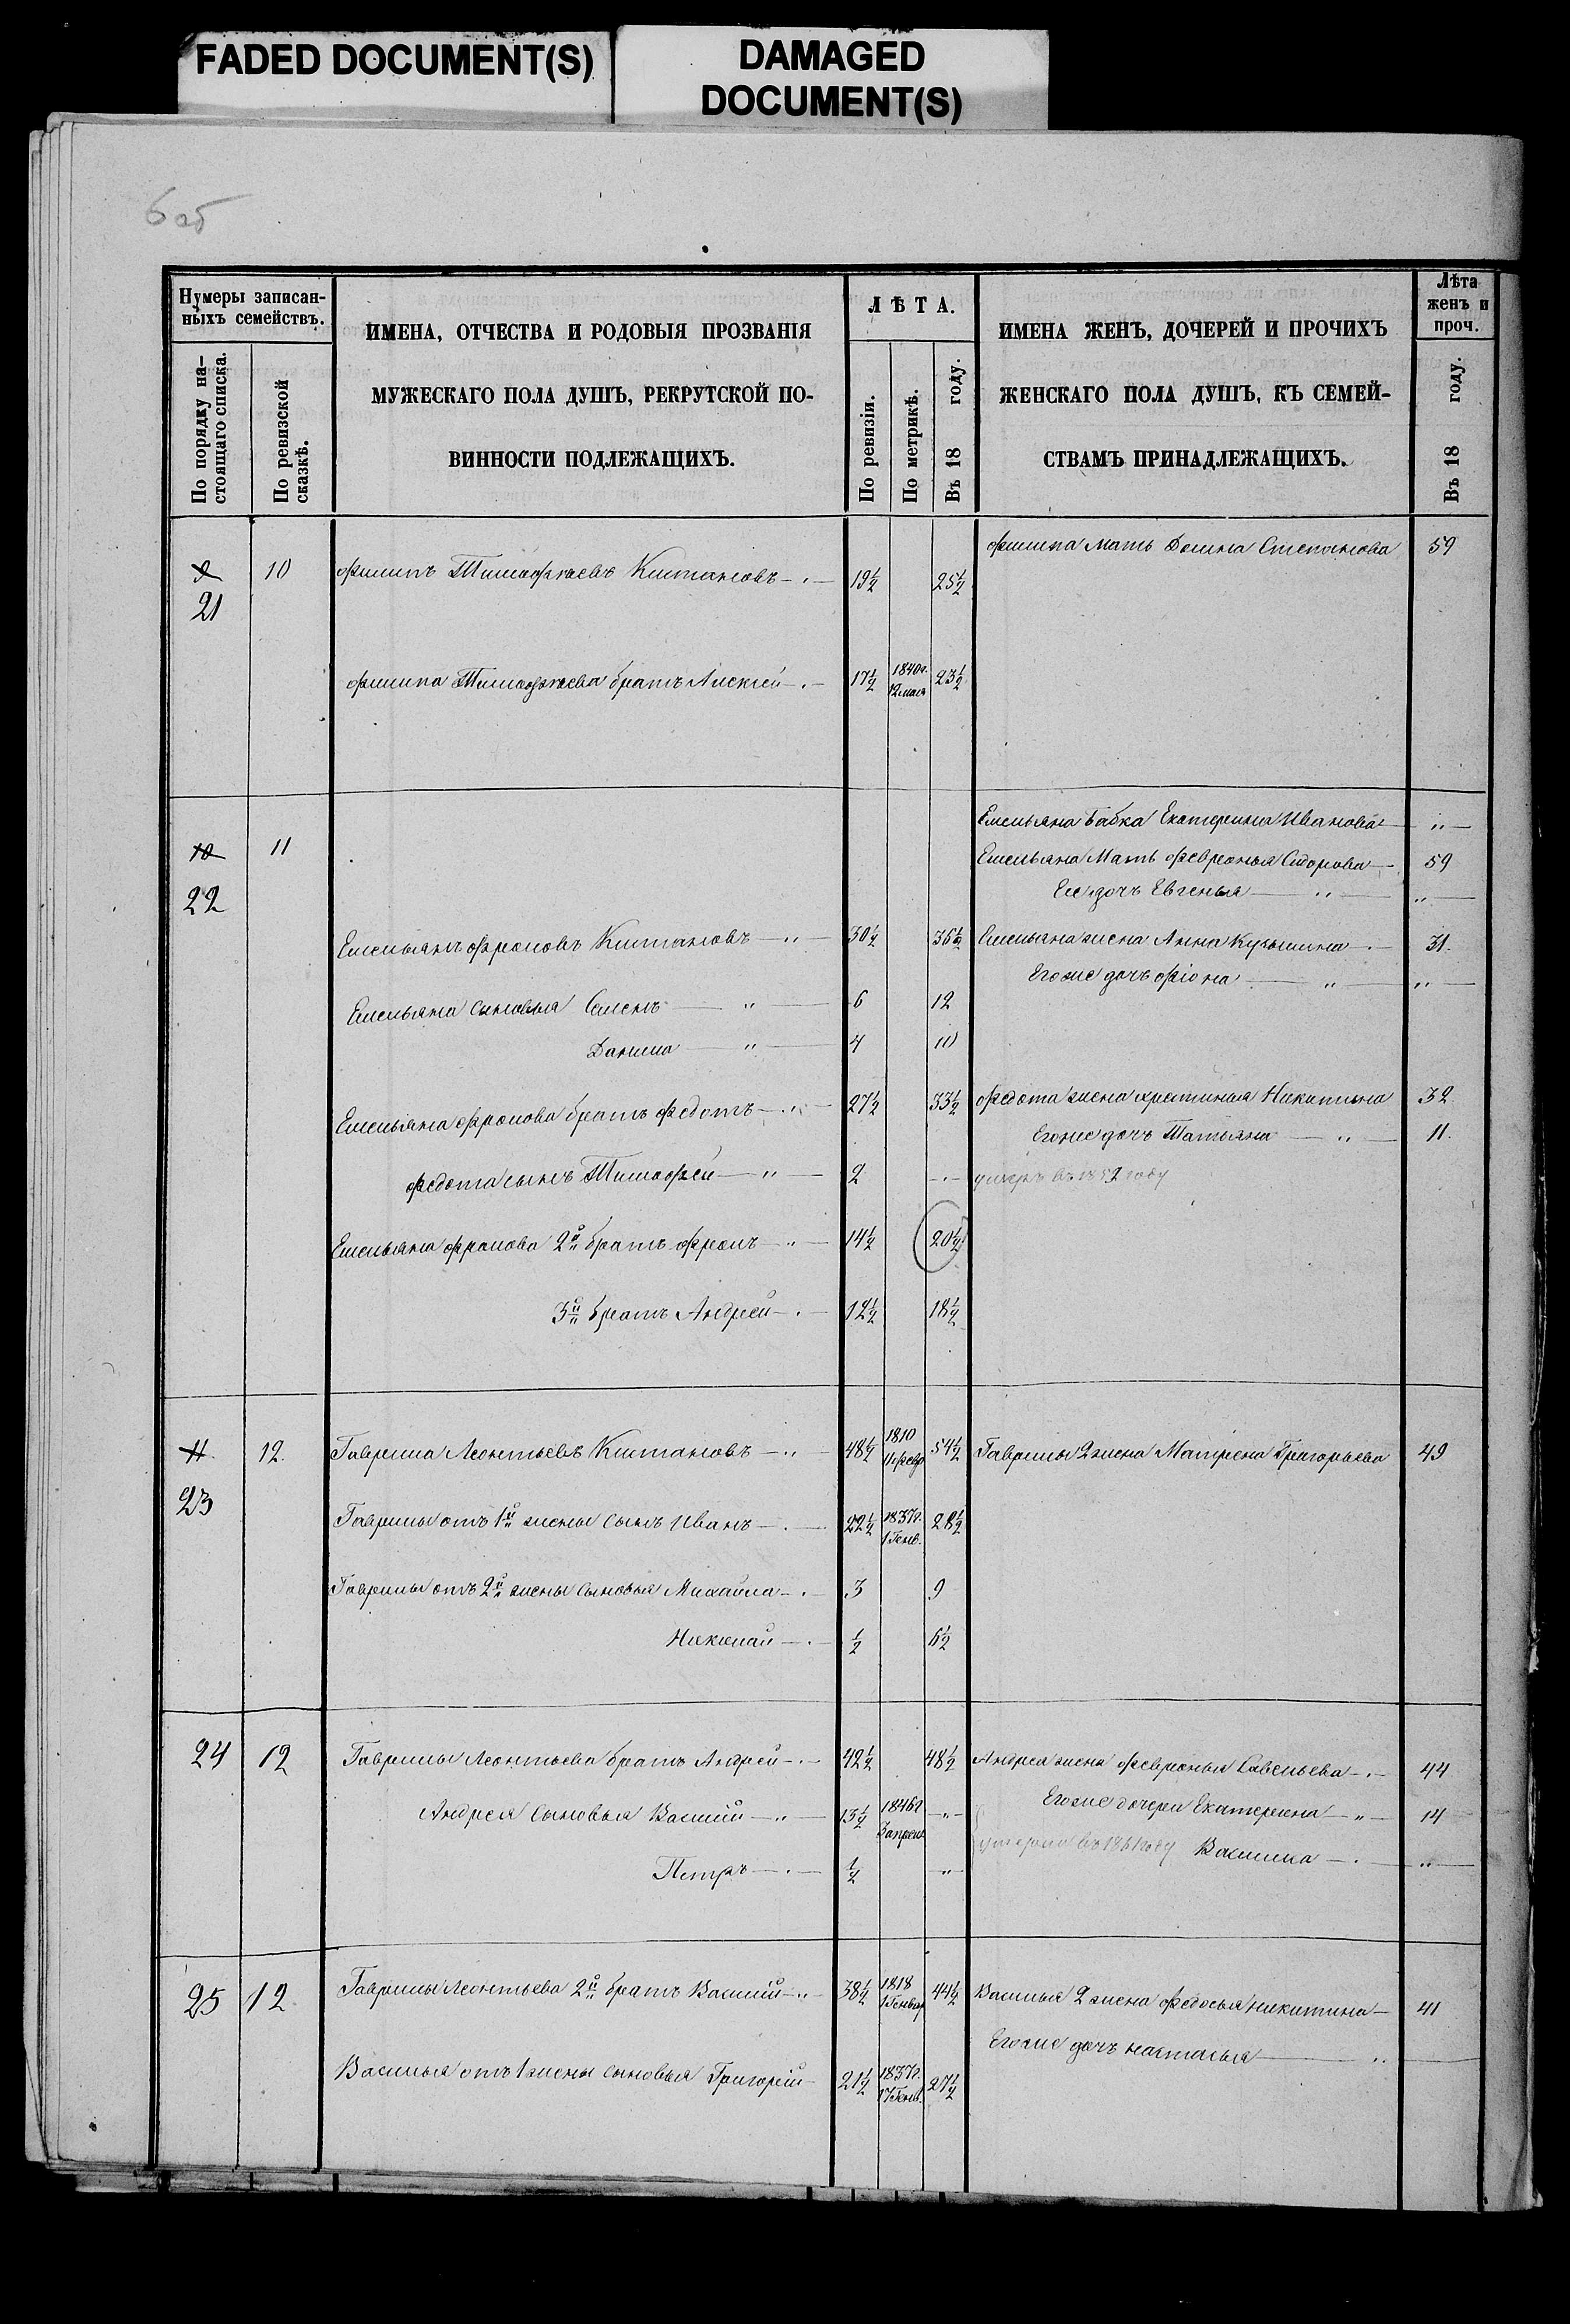 FADED DOCUMENT(S)
DAMAGED
DOCUMENT(S)
6 об
Нумеры записан-
ныхъ семействъ.
По порядку на-
стоящаго списка.
По ревизской
сказкѣ.
ИМЕНА, ОТЧЕСТВА И РОДОВЫЯ ПРОЗВАНІЯ
МУЖЕСКАГО ПОЛА ДУШЪ, РЕКРУТСКОЙ ПО-
ВИННОСТИ ПОДЛЕЖАЩИХЪ.
ЛѢТА.
По ревизіи.
По метрикѣ.
Въ 18 году.
ИМЕНА ЖЕНЪ, ДОЧЕРЕЙ И ПРОЧИХЪ
ЖЕНСКАГО ПОЛА ДУШЪ, КЪ СЕМЕЙ-
СТВАМЪ ПРИНАДЛЕЖАЩИХЪ.
Лѣта
женъ и
проч.
Въ 18 году.
Филипа Мать Домна Степанова 59
9 10 Филипъ Тимофѣевъ Китановъ 19½ 25½
21
Филипа Тимофѣева братъ Алексѣй 17½ 1840г. 12 мая 23½
Емельяна бабка Екатерина Иванова "
10 11 Емельяна Мать Февронья Сидорова 59
22 Ее дочь Евгенья " "
Емельянъ Фроловъ Китановъ " 30½ 36½ Емельяна жена Анна Кузьмина 31.
Егоже дочь " "
Емельяна сыновья Семенъ " 6 12
Данила " 4 10
Емельяна Фролова братъ Федотъ " 27½ 33½ Федота жена Никитина 32
Егоже дочь Татьяна " 11.
Федота сынъ Тимофей " 2 умеръ въ 1852 году
Емельяна Фролова 2й братъ Фролъ " 14½ 20½
3й братъ Андрей 12½ 18½
11. 12. Гаврила Леонтьевъ Китановъ " 48½ 1810 54½ Гаврилы 2 жена Матрена Григорьева 49
23
Гаврилы отъ 1й жены сынъ Иванъ 22½ 1837г. 1 Генв. 28½
Гаврилы отъ 2й жены сыновья Михайла 3 9
Николай ½ 6½
24 12 Гаврилы Леонтьева братъ Андрей 42½ 48½ Андрея жена Февронья Савельева 44
Андрея сыновья Василій " 13½ 1846г. 3 апреля " Егоже дочери Екатерина " 14
умерла въ 1861 году Василиса "
Петръ ½ "
25 12 Гаврилы Леонтьева 2й братъ Василій " 38½ 1818 1 Генвар 44½ Василья 2 жена Федосья Никитина 41
Егоже дочь Настасья "
Василья отъ 1 жены сыновья Григорій 21½ 1837г. 17 Генв. 27½